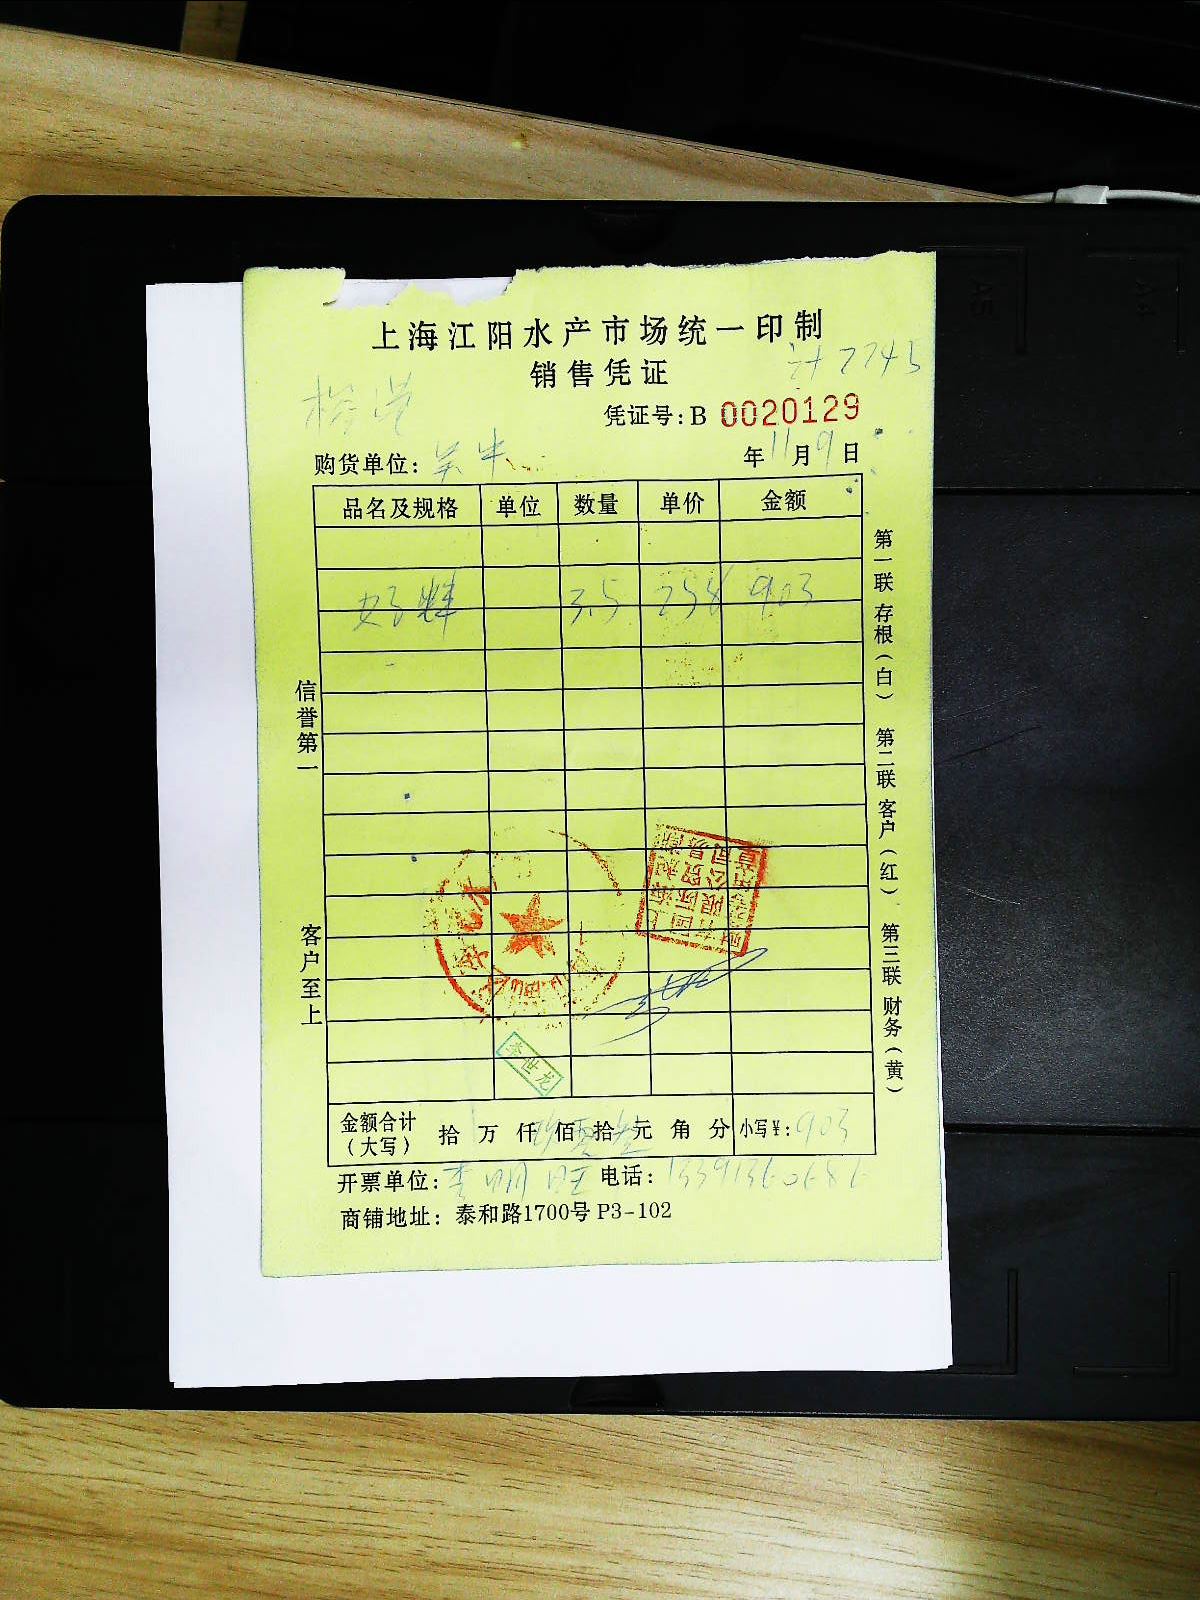 上海江阳水产市场统一印制
销售凭证
计7745
凭证号:B 0020129
购货单位:
年11月9日
品名及规格 单位 数量 单价 金额
3.5 258 903
信誉第一
客户至上
第一联 存根(白) 第二联 客户(红) 第三联 财务(黄)
李世龙
金额合计(大写) 拾 万 仟 佰 拾 元 角 分 小写¥: 903
开票单位: 李明旺 电话:
商铺地址: 泰和路1700号 P3-102
A5
A4